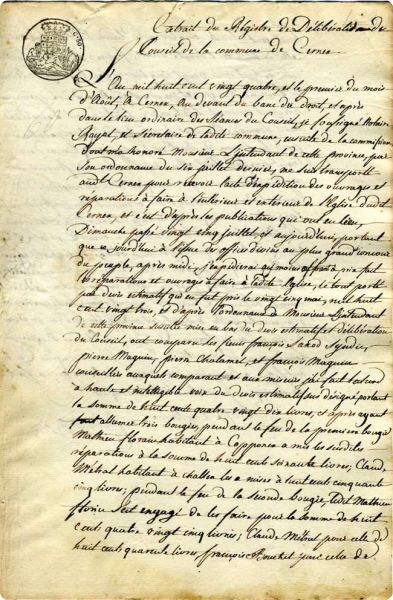 Extrait du Régistre de Délibération du
Conseil de la commune de Cernex
L'an mil huit cent vingt quatre, et le premier du mois
d'Août, à Cernex, Au devant du banc du droit, et après
dans le lieu ordinaire des Séances du Conseil, je soussigné Notaire
Royal, et Secrétaire de ladite commune, ensuite de la commission
dont m'a honoré Monsieur L'Intendant de cette province, par
Son ordonnance du six juillet dernier, me suis transporté
audit Cernex pour recevoir l'acte d'expédition des ouvrages et
réparations à faire à l'intérieur et extérieur de l'Eglise dudit
Cernex, et c'est d'après les publications qui ont eu lieu,
Dimanche passé vingt cinq juillet, et aujourd'hui, portant
que ce jourd'hui à l'issue des offices divins au plus grand concours
du peuple, après midi, j'expédierai au moins offrant à prix fait
les réparations et ouvrages à faire à ladite Eglise, le tout porté
par devis estimatif qui en fut pris le vingt cinq mai, mil huit
cent vingt trois, et d'après l'ordonnance de Monsieur L'Intendant
de cette province mise en bas du devis estimatif et délibération
du Conseil, ont comparu les Sieurs françois Syndic,
Pierre Magnin, pierre Chatamel, et françois Magnin
conseillers auxquels comparant et aux mieux j'ai fait lecture
à haute et intelligible voix du devis estimatif sus désigné portant
la somme de huit cents quatre vingt dix livres, et après ayant
fait allumer trois bougies, pendant le feu de la première bougie
Mathieu florain habitant à Copponex a mis les susdites
réparations à la Somme de huit cents soixante livres; Claude
Métral habitant à challex les a mises à huit cents cinquante
cinq livres; pendant le feu de la seconde bougie, ledit Mathieu
florin s'est engagé de les faire pour la somme de huit
cents quatre vingt cinq livres; Claude Métral pour celle de
huit cents quarante livres, françois Bouchet pour celle de